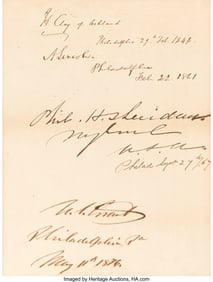 H. Clay of Ashland
Philadelphia 29th Feb. 1848.
A. Lincoln
Philadelphia
Feb. 22. 1861
Phil. H. Sheridan
U.S.A.
Philad Sept 27th/67
U.S. Grant
Philadelphia Pa
May 11th 1876
Image by Heritage Auctions, HA.com